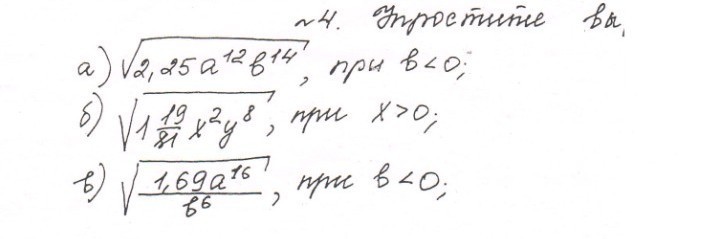 №4. Упростите вы,
а) √2,25a¹²b¹⁴, при b<0;
б) √1 19/81 x²y⁸, при x>0;
в) √1,69a¹⁶/b⁶, при b<0;